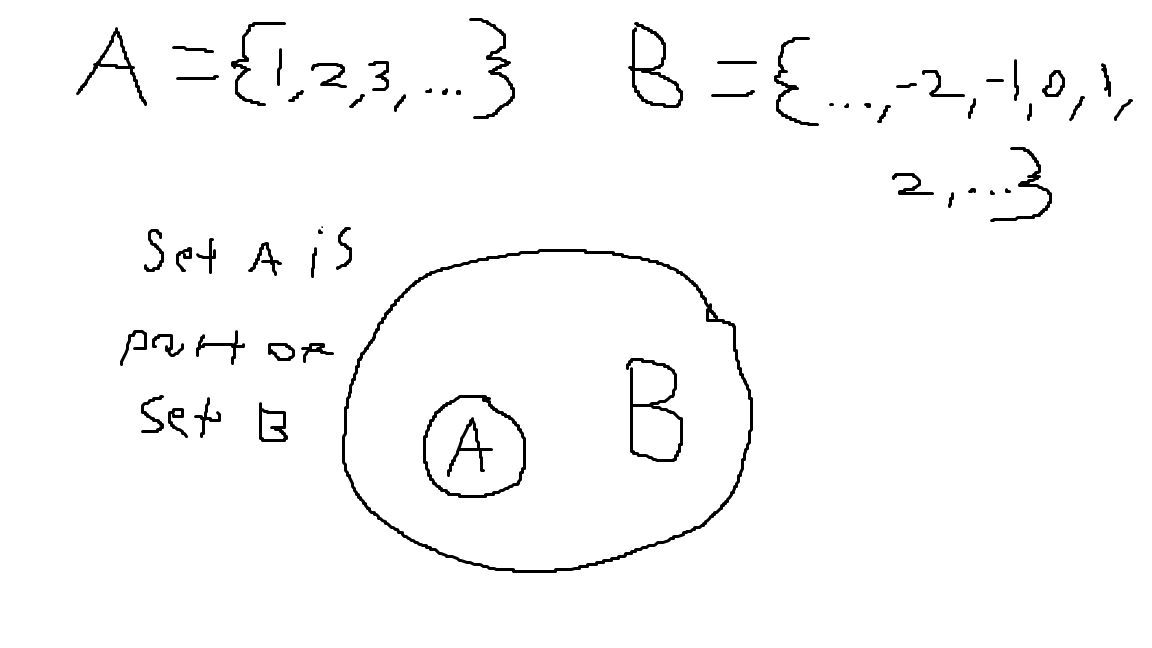 A = {1, 2, 3, ...} B = {..., -2, -1, 0, 1,
2, ...}
Set A is
part of
Set B
A
B